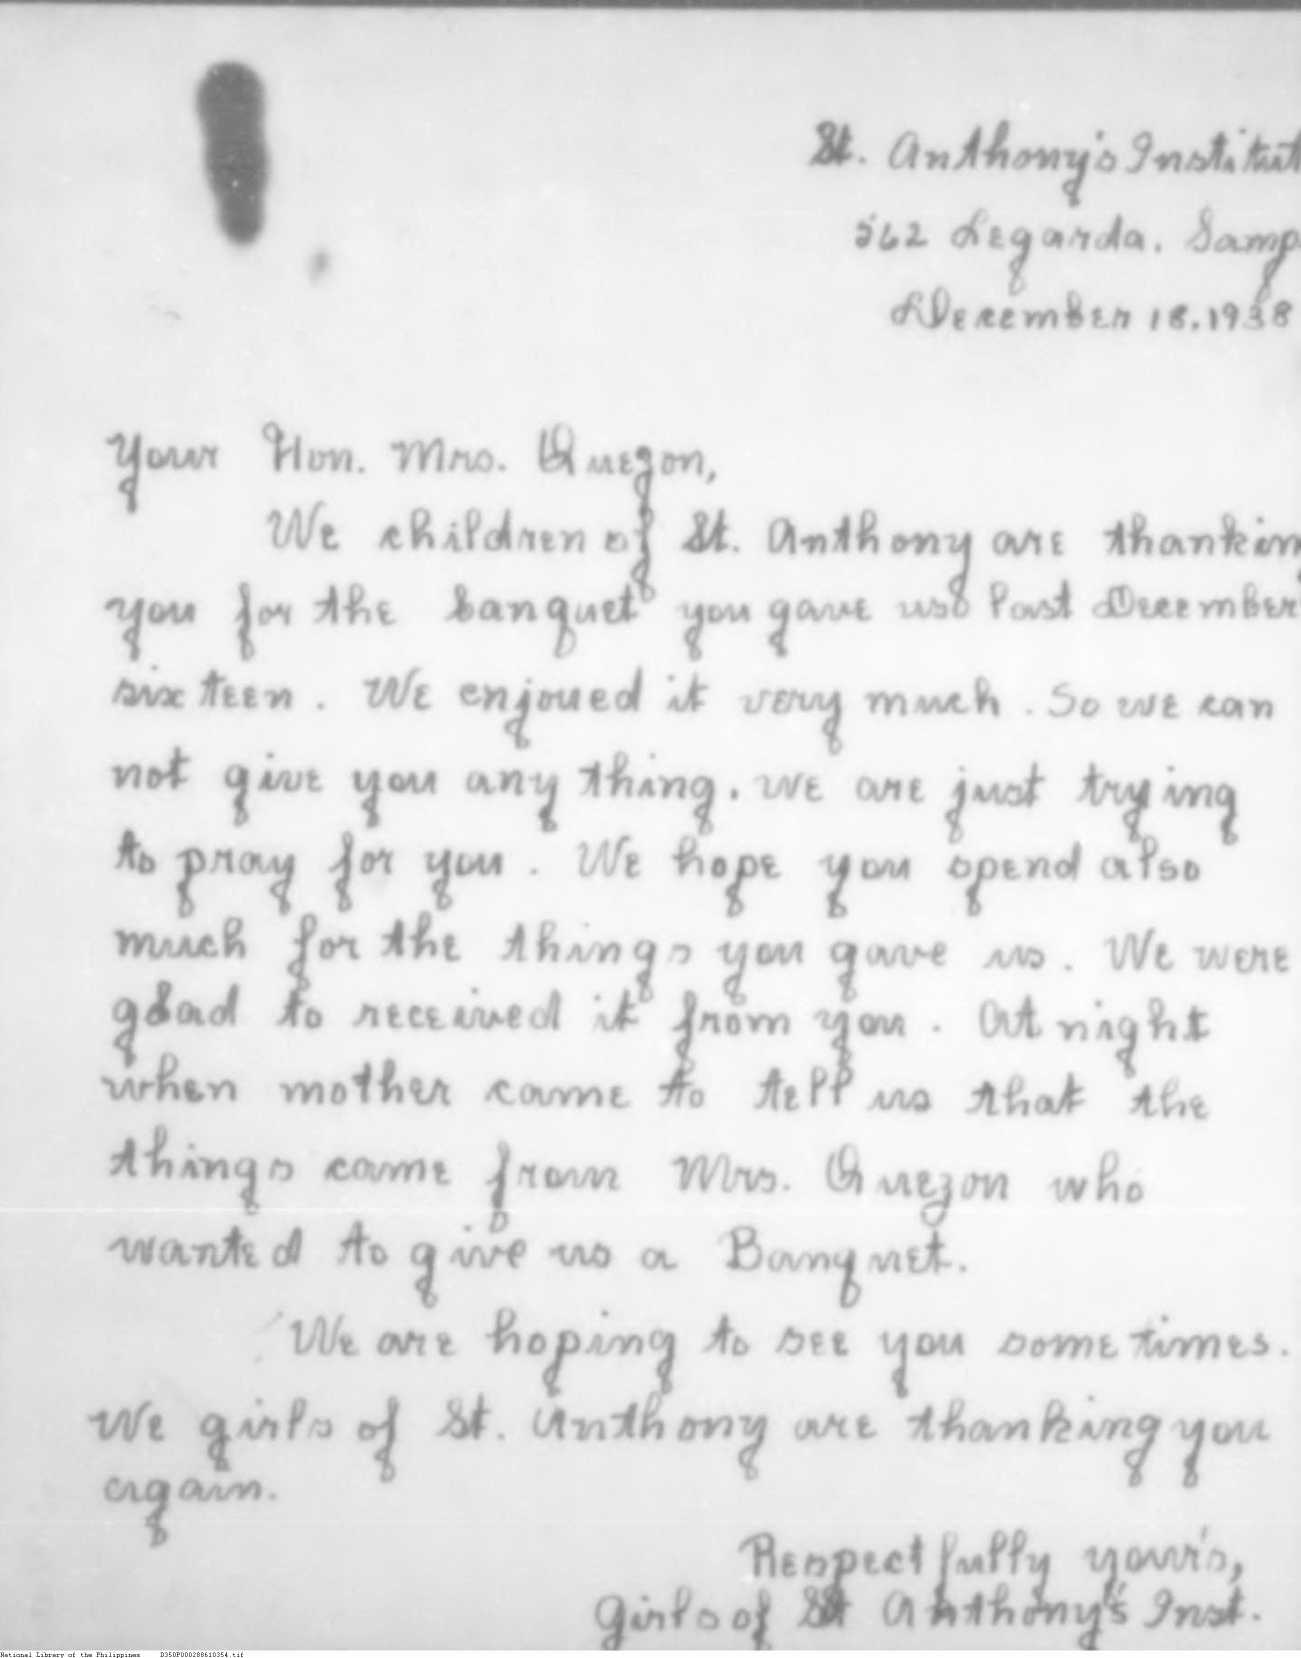 St. Anthony's Institut
562 Legarda. Samp
December 18.1938
Your Hon. Mrs. Quezon,
We children of St. Anthony are thankin
you for the banquet you gave us last December
sixteen. We enjoued it very much. So we can
not give you any thing. We are just trying
to pray for you. We hope you spend also
much for the things you gave us. We were
glad to received it from you. At night
when mother came to tell us that the
things came from Mrs. Quezon who
wanted to give us a Banquet.
We are hoping to see you some times.
We girls of St. Anthony are thanking you
again.
Respectfully your's,
Girls of St Anthony's Inst.
National Library of the Philippines D350P000288610354.tif